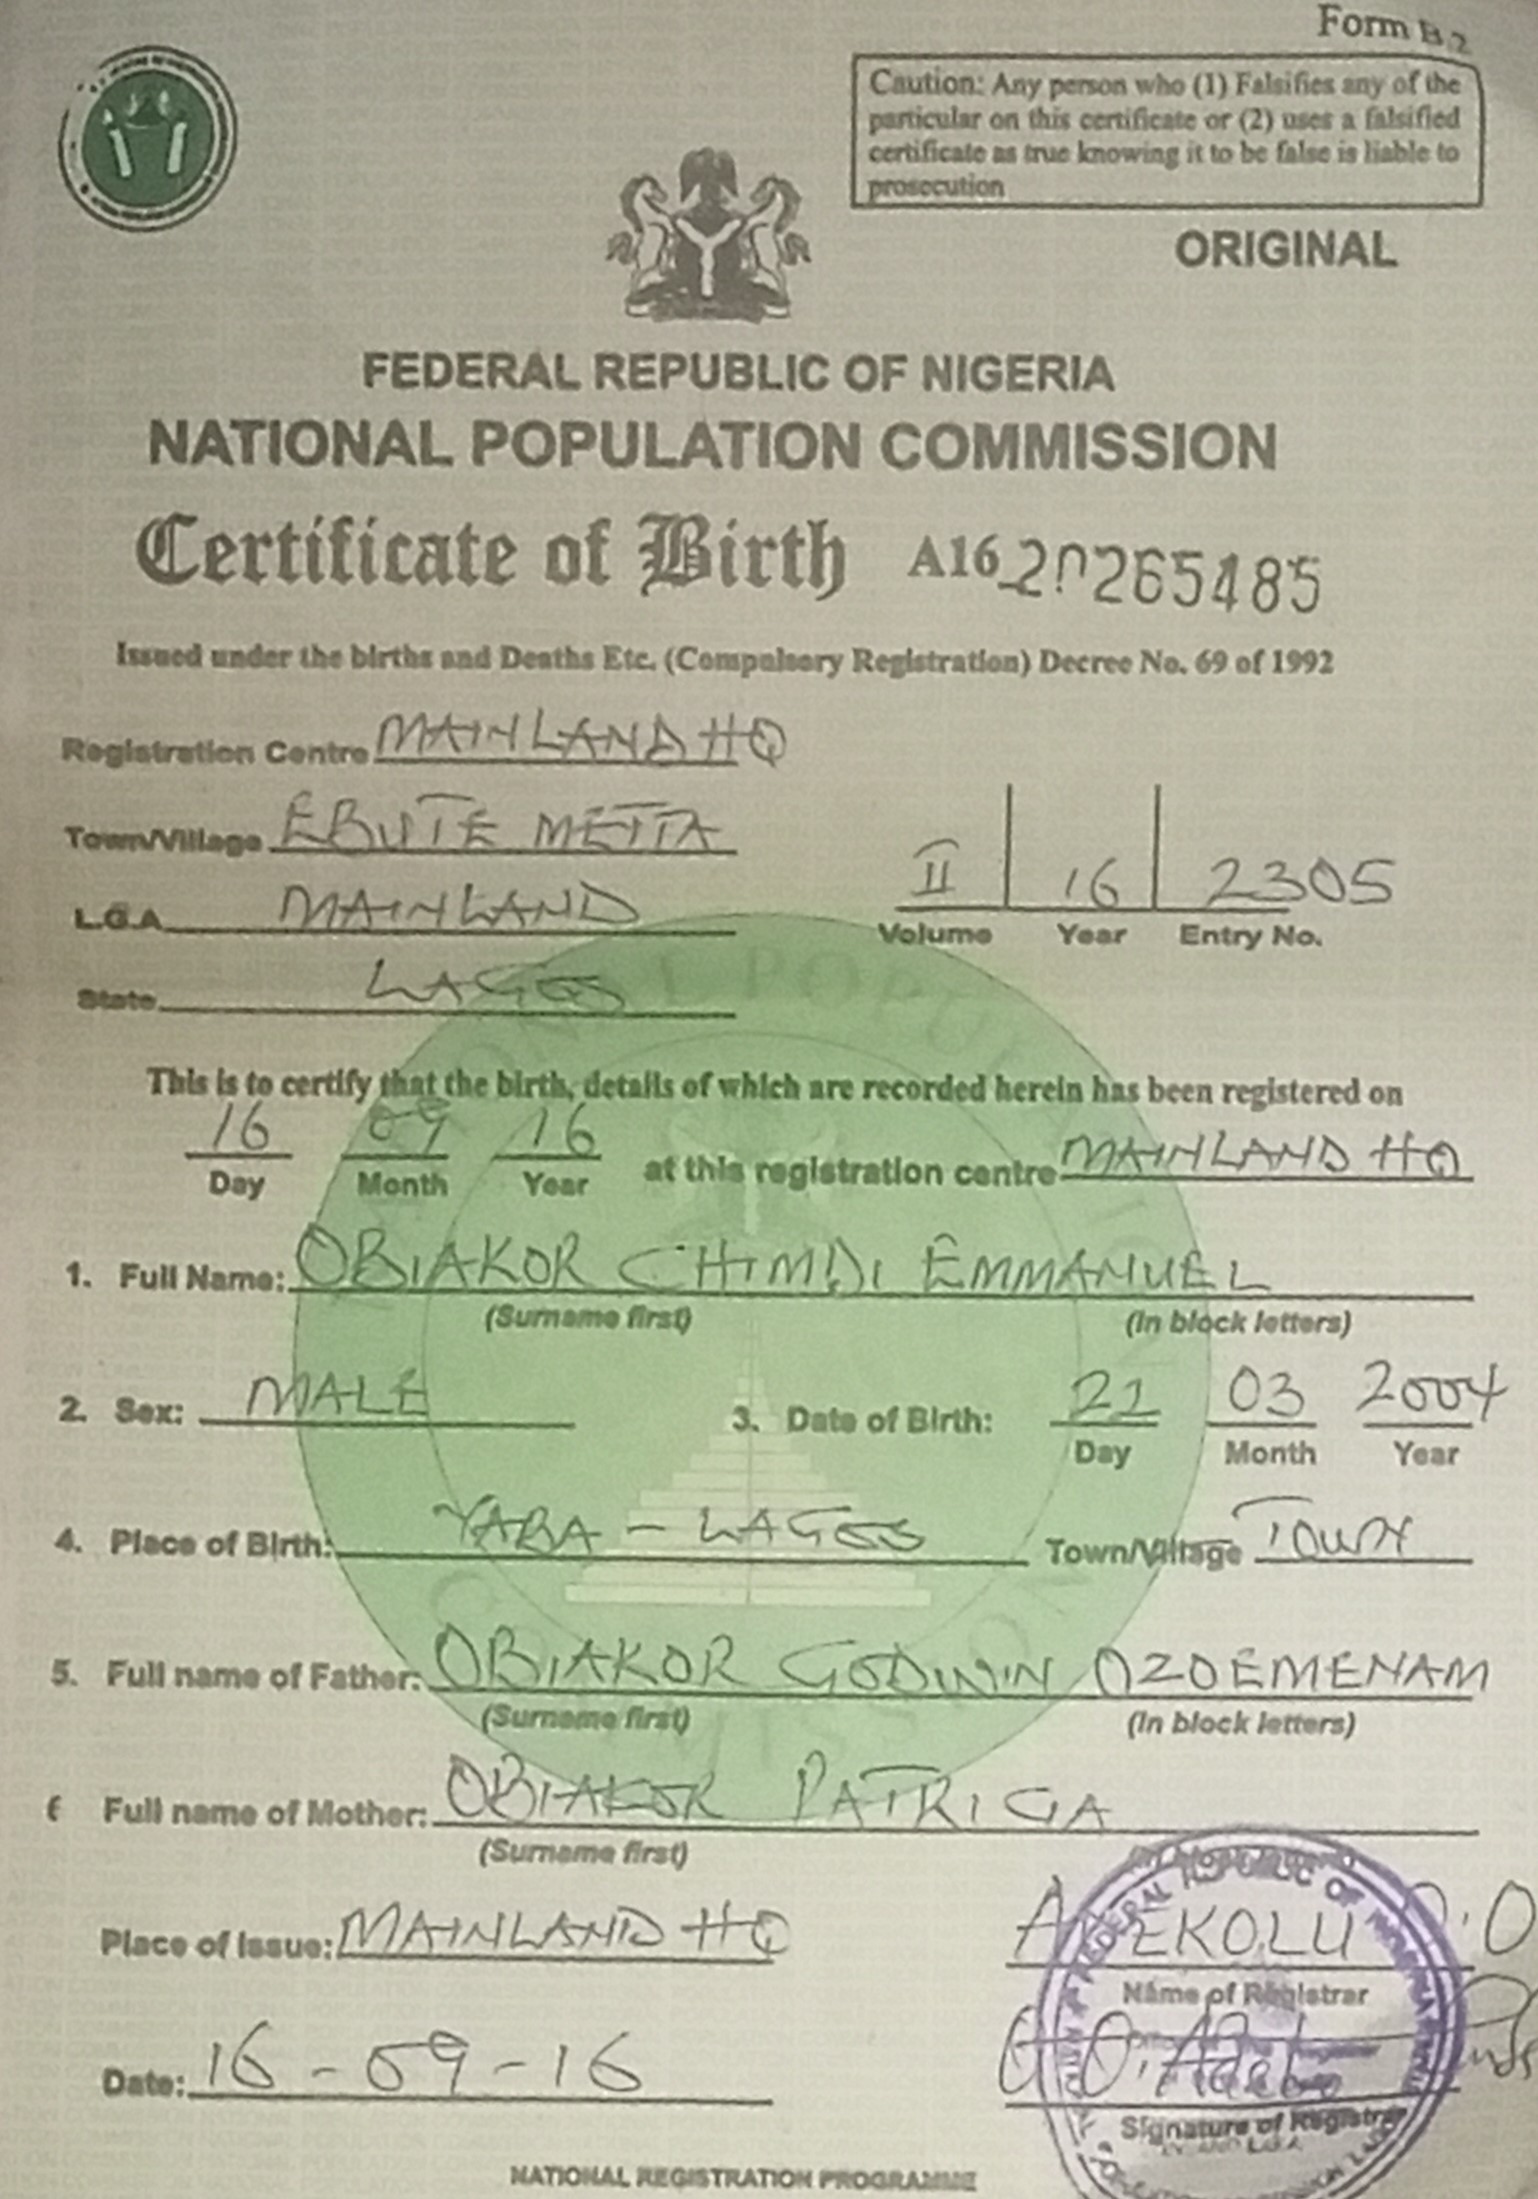 Form B2
Caution: Any person who (1) Falsifies any of the
particular on this certificate or (2) uses a falsified
certificate as true knowing it to be false is liable to
prosecution
ORIGINAL
FEDERAL REPUBLIC OF NIGERIA
NATIONAL POPULATION COMMISSION
Certificate of Birth A16 20265485
Issued under the births and Deaths Etc. (Compulsory Registration) Decree No. 69 of 1992
Registration Centre MAINLAND HQ
Town/Village EBUTE METTA
II 16 2305
L.G.A MAINLAND
Volume Year Entry No.
State LAGOS
This is to certify that the birth, details of which are recorded herein has been registered on
16 09 16 at this registration centre MAINLAND HQ
Day Month Year
1. Full Name: OBIAKOR CHIMDI EMMANUEL
(Surname first) (In block letters)
2. Sex: MALE 3. Date of Birth: 21 03 2004
Day Month Year
4. Place of Birth: YABA - LAGOS Town/Village TOWN
5. Full name of Father: OBIAKOR GODWIN OZOEMENAM
(Surname first) (In block letters)
Full name of Mother: OBIAKOR PATRICIA
(Surname first)
Place of Issue: MAINLAND HQ
ADEKOLU O.O
Name of Registrar
Date: 16-09-16
Signature of Registrar
NATIONAL REGISTRATION PROGRAMME